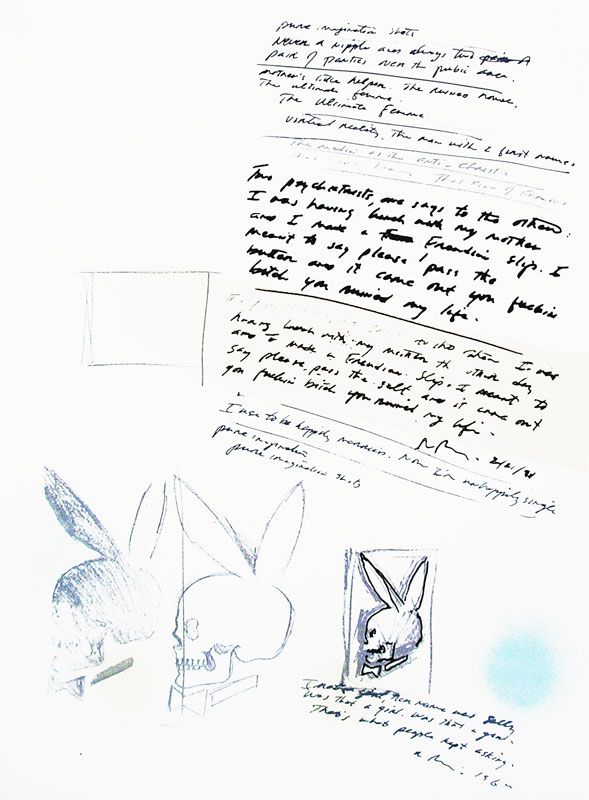 pure imagination shots
Never a nipple and always two
pair of panties over the pubic area.
mother's little helper. The nurses nurse.
The ultimate femme.
The Ultimate Femme
Virtual reality. The man with 2 first names
The medium as the anti-Christ.
Two psychiatrists, one says to the other:
I was having lunch with my mother
and I made a Freudian slip. I
meant to say please pass the
butter and it came out you fuckin
bitch you ruined my life.
to the other I was
having lunch with my mother the other day
and I made a Freudian slip. I meant to
say please pass the salt and it came out
you fuckin bitch you ruined my life.
I use to be happily married. Now I'm unhappily single
pure imagination
pure imagination shots
I her name was Sally
Was that a girl. Was that a girl.
That's what people kept asking.